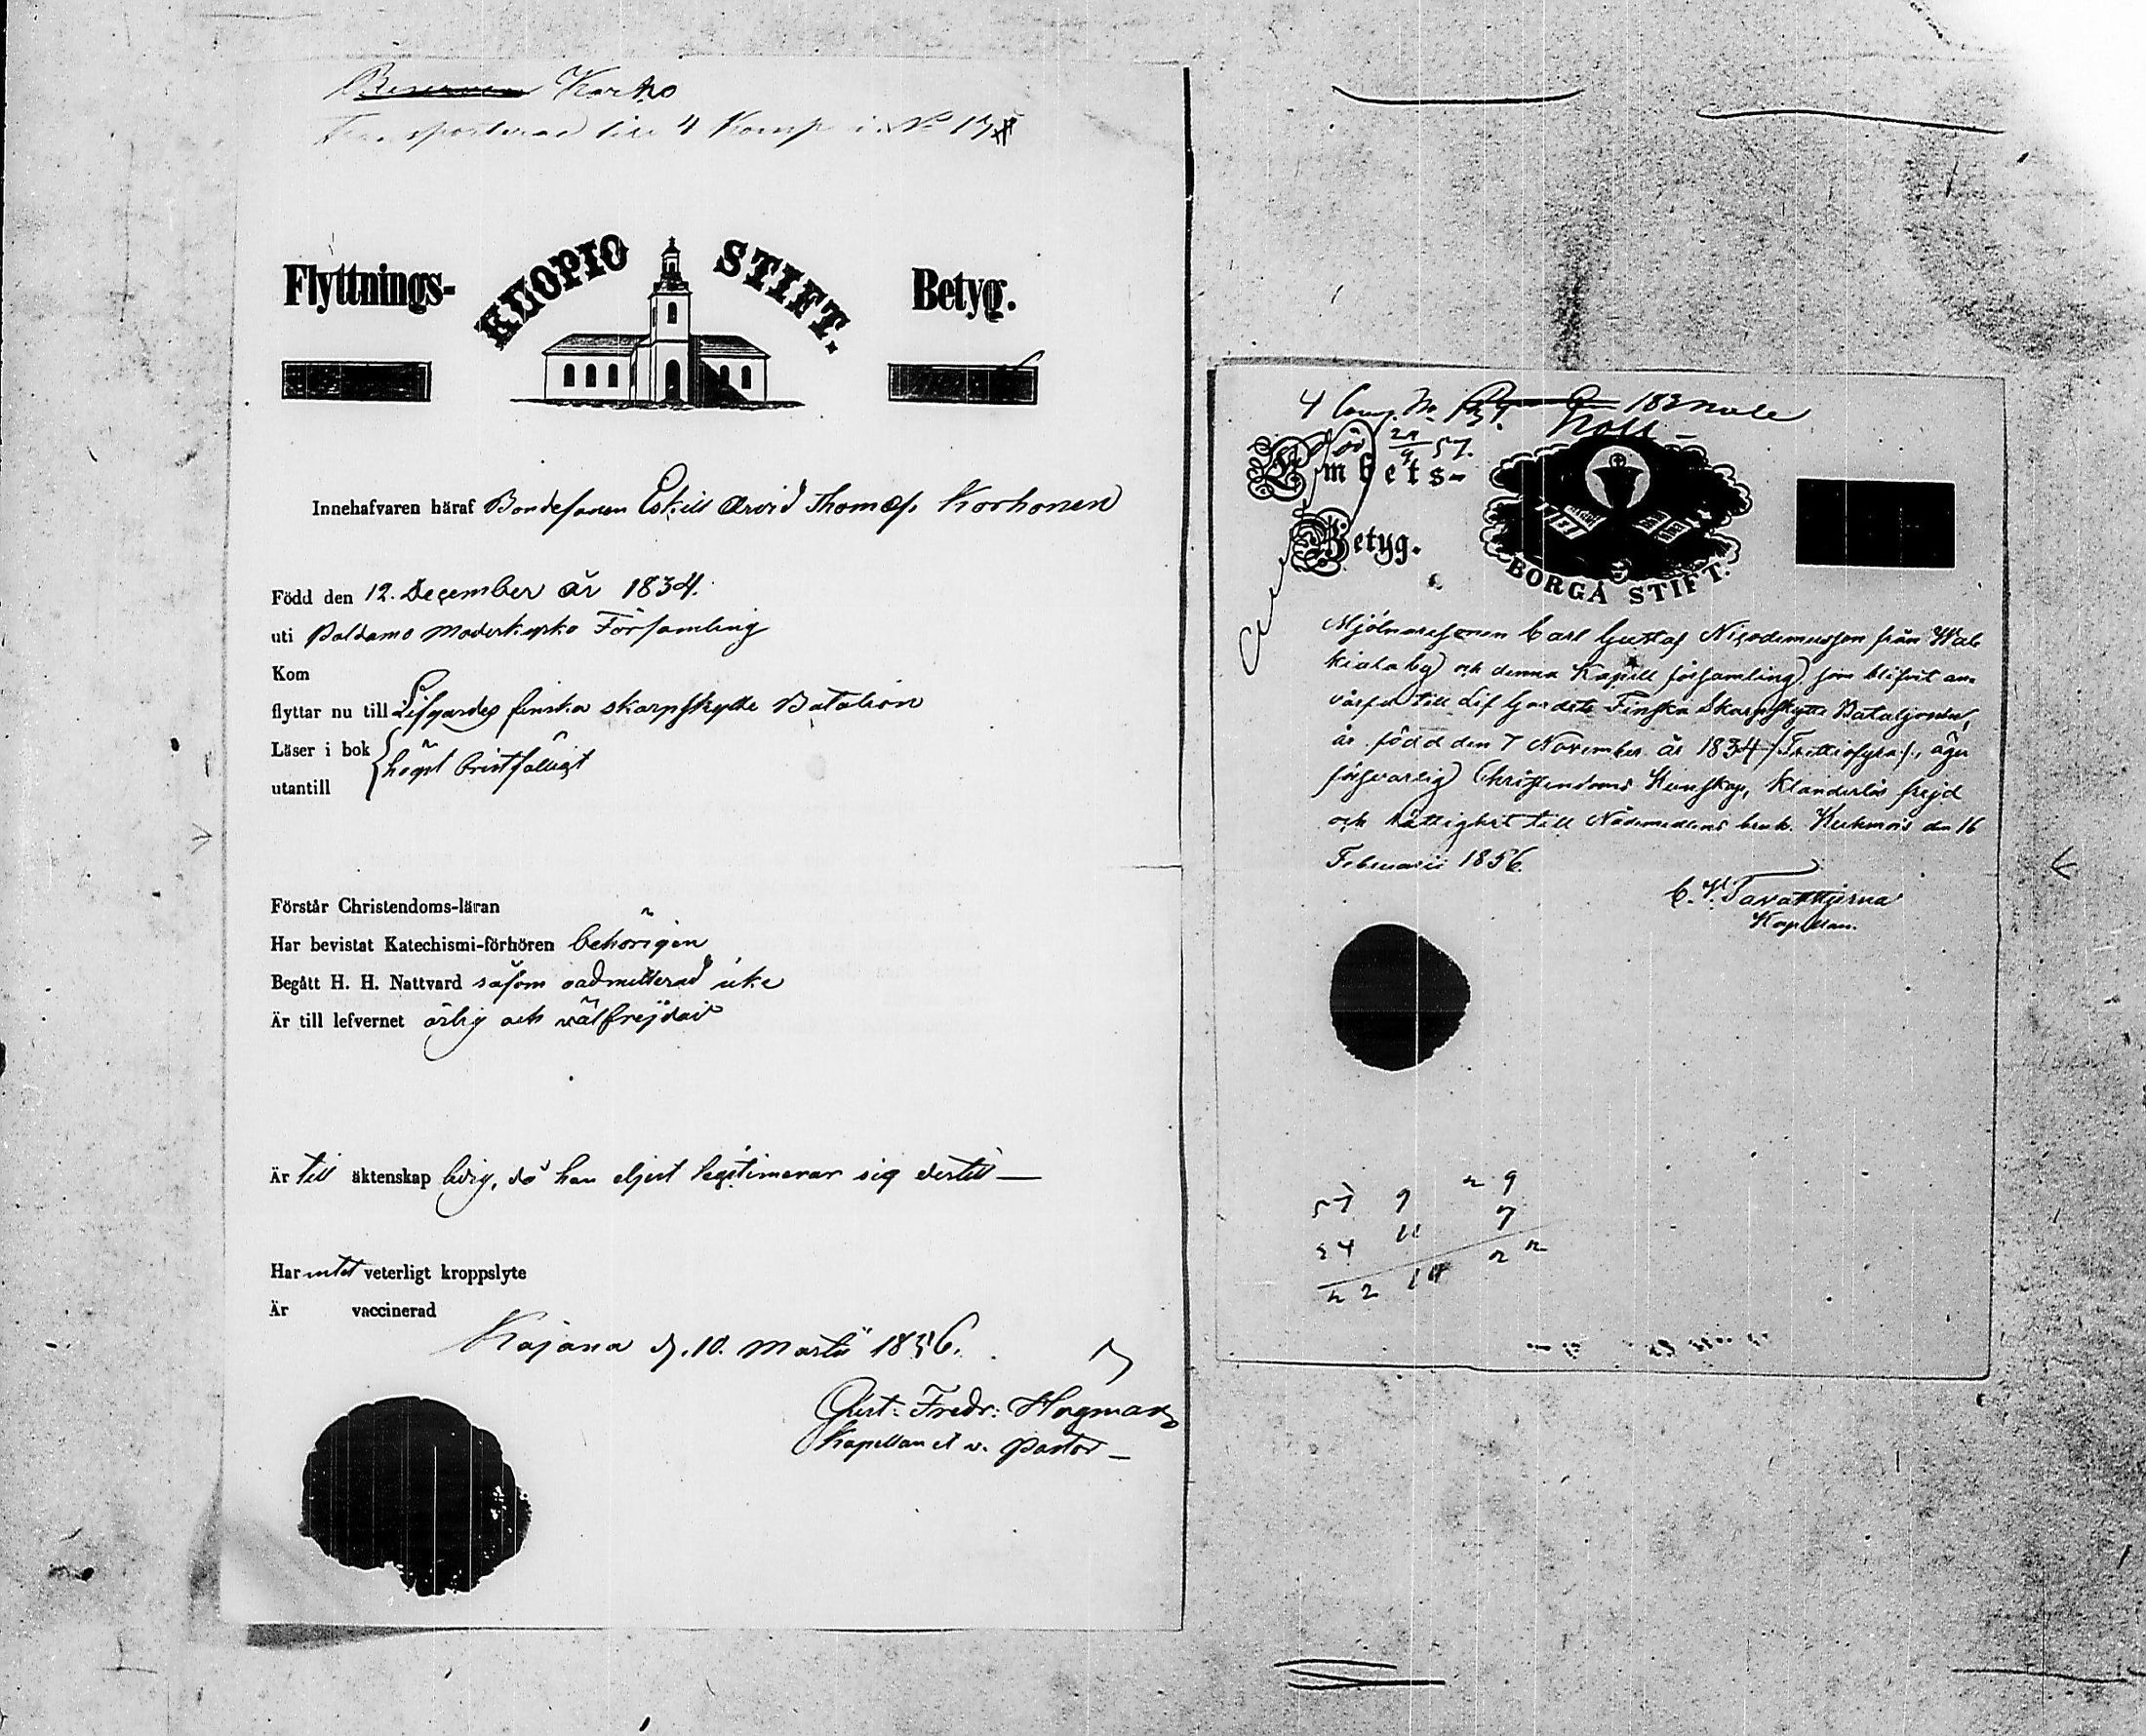 Karho
Transporterad till 4 Komp i No 17
Flyttnings- KUOPIO STIFT. Betyg.
Innehafvaren häraf Bondesonen Eskill Arvid Thomæs. Korhonen
Född den 12. December år 1834.
uti Paldamo Moderkyrko Församling
Kom
flyttar nu till Lifgardes finska skarpskytte Batalion
Läser i bok
högst bristfälligt
utantill
Förstår Christendoms-läran
Har bevistat Katechismi-förhören behörigen
Begått H. H. Nattvard såsom oadmitterad icke
Är till lefvernet ärlig och välfrejdad
Är till äktenskap ledig, då han eljest legitimerar sig dertill —
Har intet veterligt kroppslyte
Är vaccinerad
Kajana d. 10. Martii 1856.
Gust: Fredr: Hogman
Kapellan et v. Pastor —
4 Comp. No
Död 29/9 57.
Embets-
Betyg.
BORGÅ STIFT.
Mjölnaresonen Carl Gustaf Nicodemusson från Wal
kiala by och denna Kapell församling, som blifvit an-
värfvad till Lif Gardets Finska Skarpskytte Bataljonen,
är född den 7 November år 1834 /:Trettiofyra:/, äger
försvarlig Christendoms Kunskap, klanderlös frejd
och rättighet till Nådemedlens bruk. Kuhmois den 16
Februarii 1856.
C. W. Tavaststjerna
Kapellan.
57 9 29
34 11 7
22 10 22